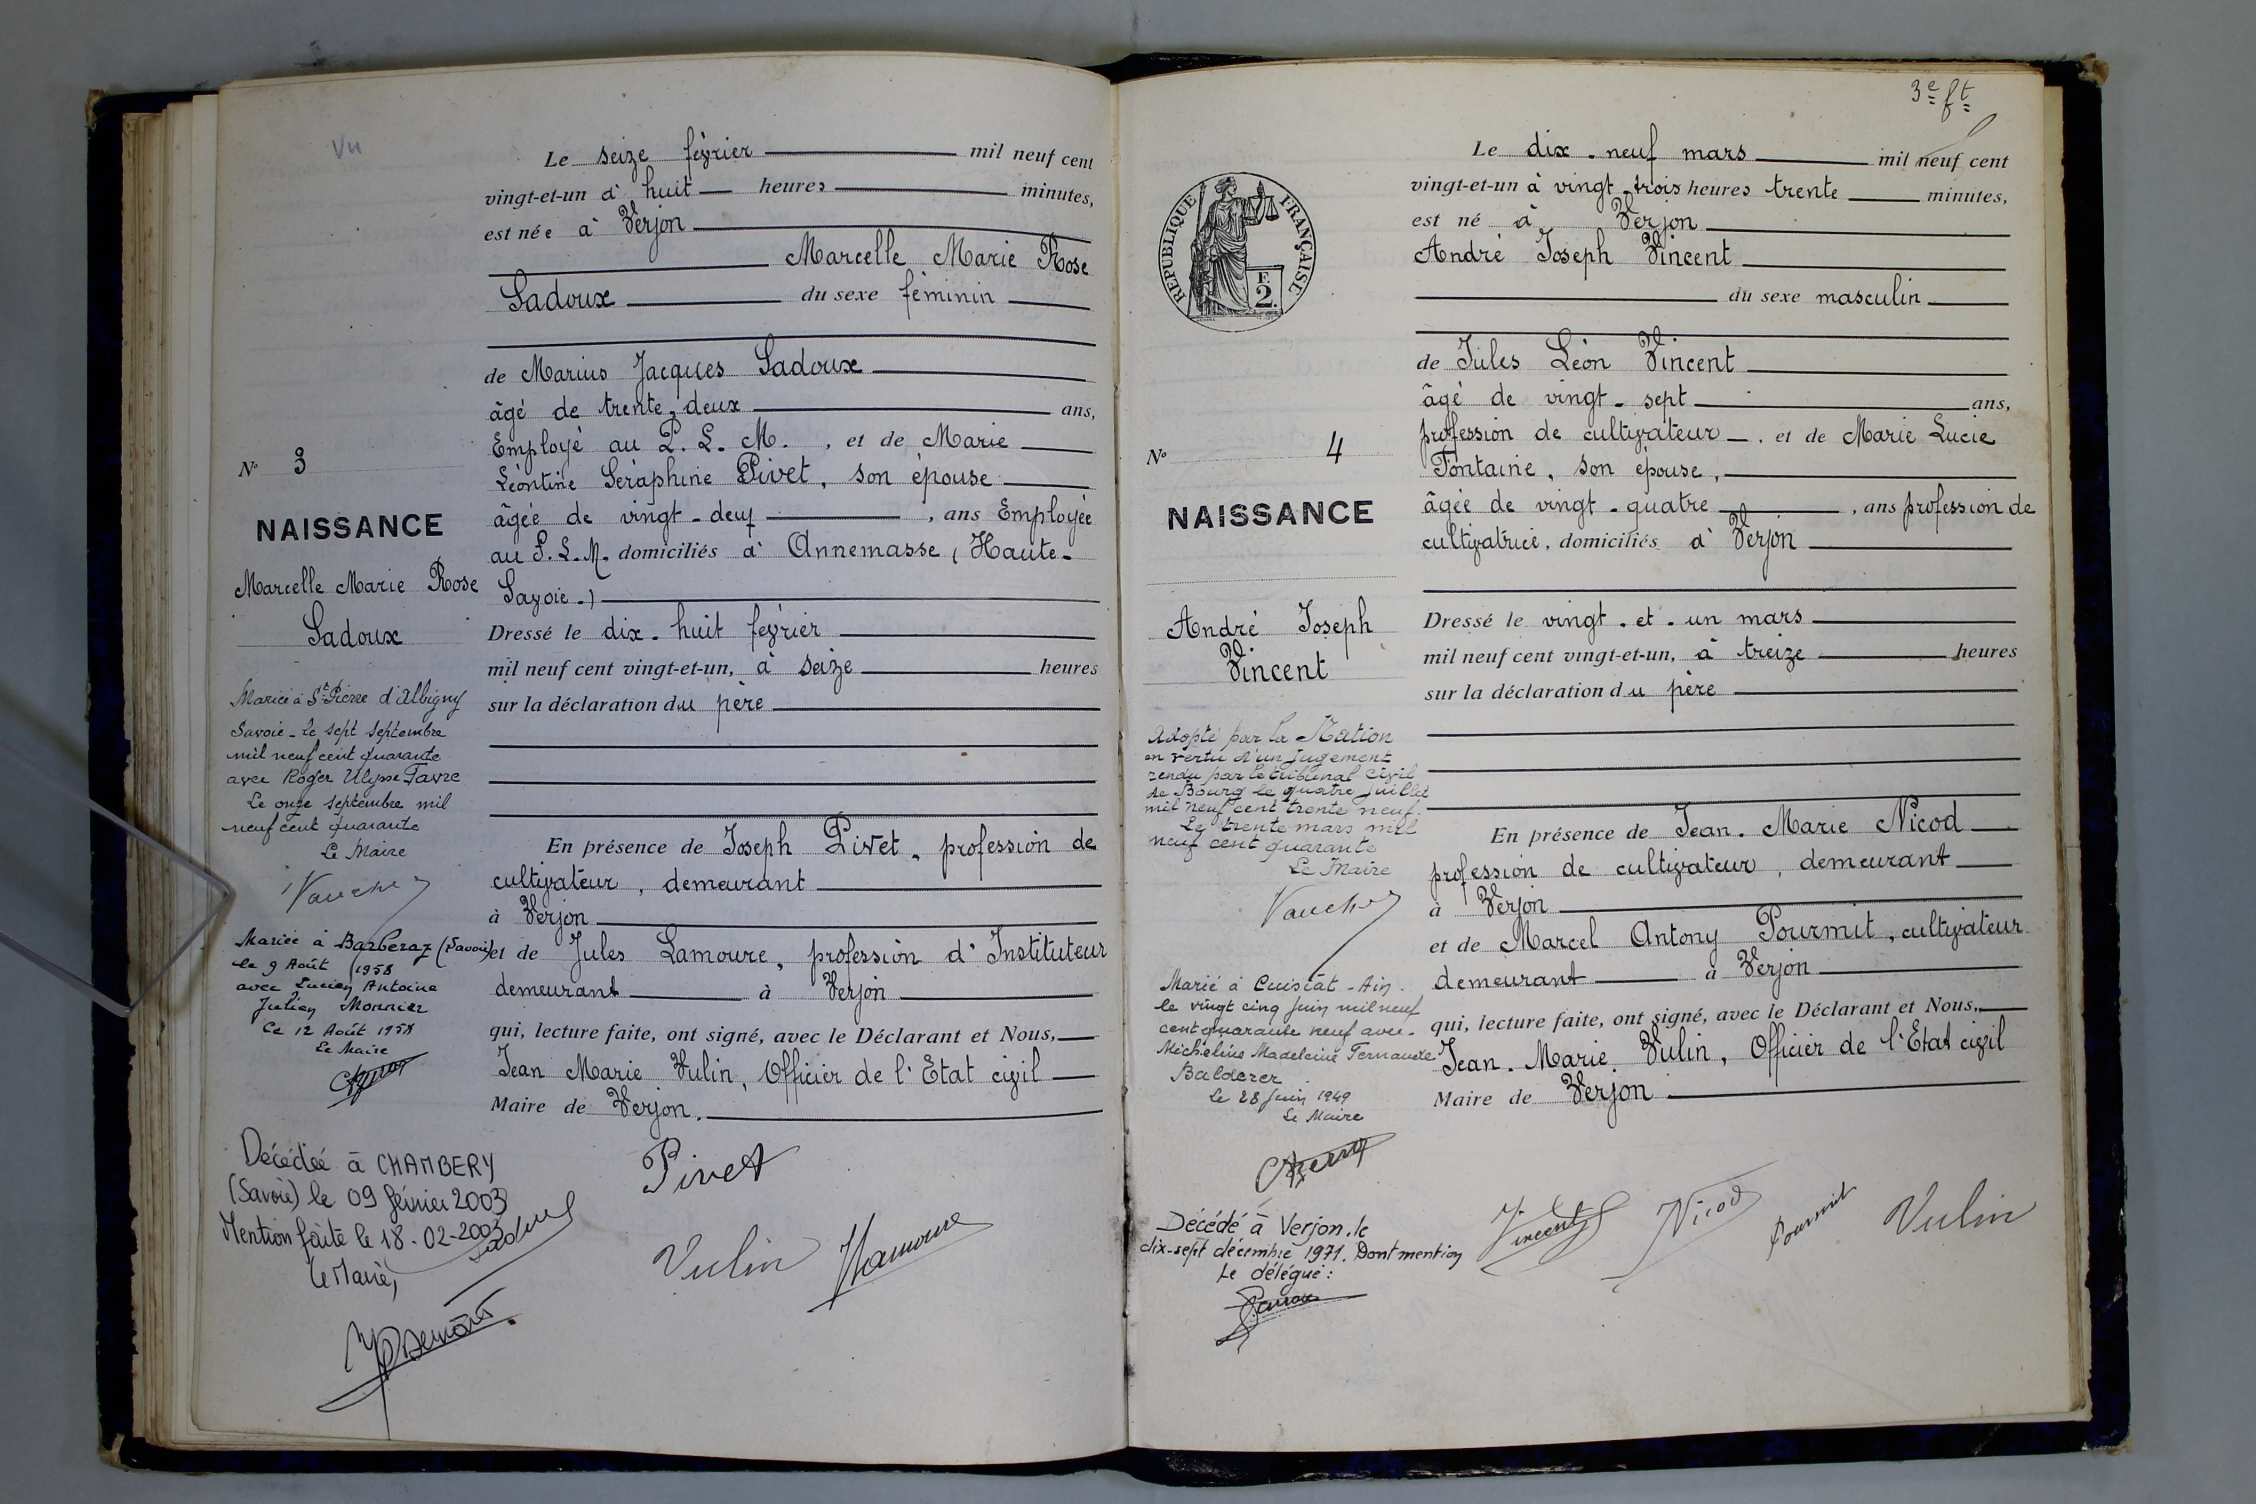 Vu
Le seize février mil neuf cent
vingt-et-un à huit heures minutes,
est née à Verjon
Marcelle Marie Rose
Sadoux du sexe féminin
de Marius Jacques Sadoux
âgé de trente-deux ans,
Employé au P. L. M. , et de Marie
Léontine Séraphine Pivet, son épouse
âgée de vingt-deuf , ans Employée
au P. L. M. domiciliés à Annemasse (Haute-
Savoie.)
Dressé le dix-huit février
mil neuf cent vingt-et-un, à seize heures
sur la déclaration du père
En présence de Joseph Pivet, profession de
cultivateur, demeurant
à Verjon
et de Jules Lamoure, profession d'Instituteur
demeurant à Verjon
qui, lecture faite, ont signé, avec le Déclarant et Nous,
Jean Marie Vulin, Officier de l'Etat civil
Maire de Verjon.
Pivet
Vulin
Lamoure
Sadoux
N° 3
NAISSANCE
Marcelle Marie Rose
Sadoux
Mariée à St Pierre d'Albigny
Savoie - le sept septembre
mil neuf cent quarante
avec Roger Ulysse Favre
Le onze septembre mil
neuf cent quarante
Le Maire
Mariée à Barberaz (Savoie)
le 9 Août 1958
avec Lucien Antoine
Julien Monnier
Le 12 Août 1958
Le Maire
Décédée à CHAMBERY
(Savoie) le 09 février 2003
Mention faite le 18-02-2003
Le Maire,
3e ft
Le dix-neuf mars mil neuf cent
vingt-et-un à vingt-trois heures trente minutes,
est né à Verjon
André Joseph Vincent
du sexe masculin
de Jules Léon Vincent
âgé de vingt-sept ans,
profession de cultivateur , et de Marie Lucie
Fontaine, son épouse,
âgée de vingt-quatre , ans profession de
cultivatrice, domiciliés à Verjon
Dressé le vingt-et-un mars
mil neuf cent vingt-et-un, à treize heures
sur la déclaration du père
En présence de Jean-Marie Nicod
profession de cultivateur, demeurant
à Verjon
et de Marcel Antony Pourmit, cultivateur
demeurant à Verjon
qui, lecture faite, ont signé, avec le Déclarant et Nous,
Jean-Marie Vulin, Officier de l'Etat civil
Maire de Verjon
Vincent
Nicod
Pourmit
Vulin
RÉPUBLIQUE FRANÇAISE
F.
2.
N° 4
NAISSANCE
André Joseph
Vincent
Adopté par la Nation
en vertu d'un jugement
rendu par le tribunal civil
de Bourg le quatre juillet
mil neuf cent trente neuf.
Le trente mars mil
neuf cent quarante
Le Maire
Marié à Cuisiat - Ain.
le vingt cinq juin mil neuf
cent quarante neuf avec
Micheline Madeleine Fernande
Balderer
Le 28 juin 1949
Le Maire
Décédé à Verjon, le
dix-sept décembre 1971. Dont mention
Le délégué :